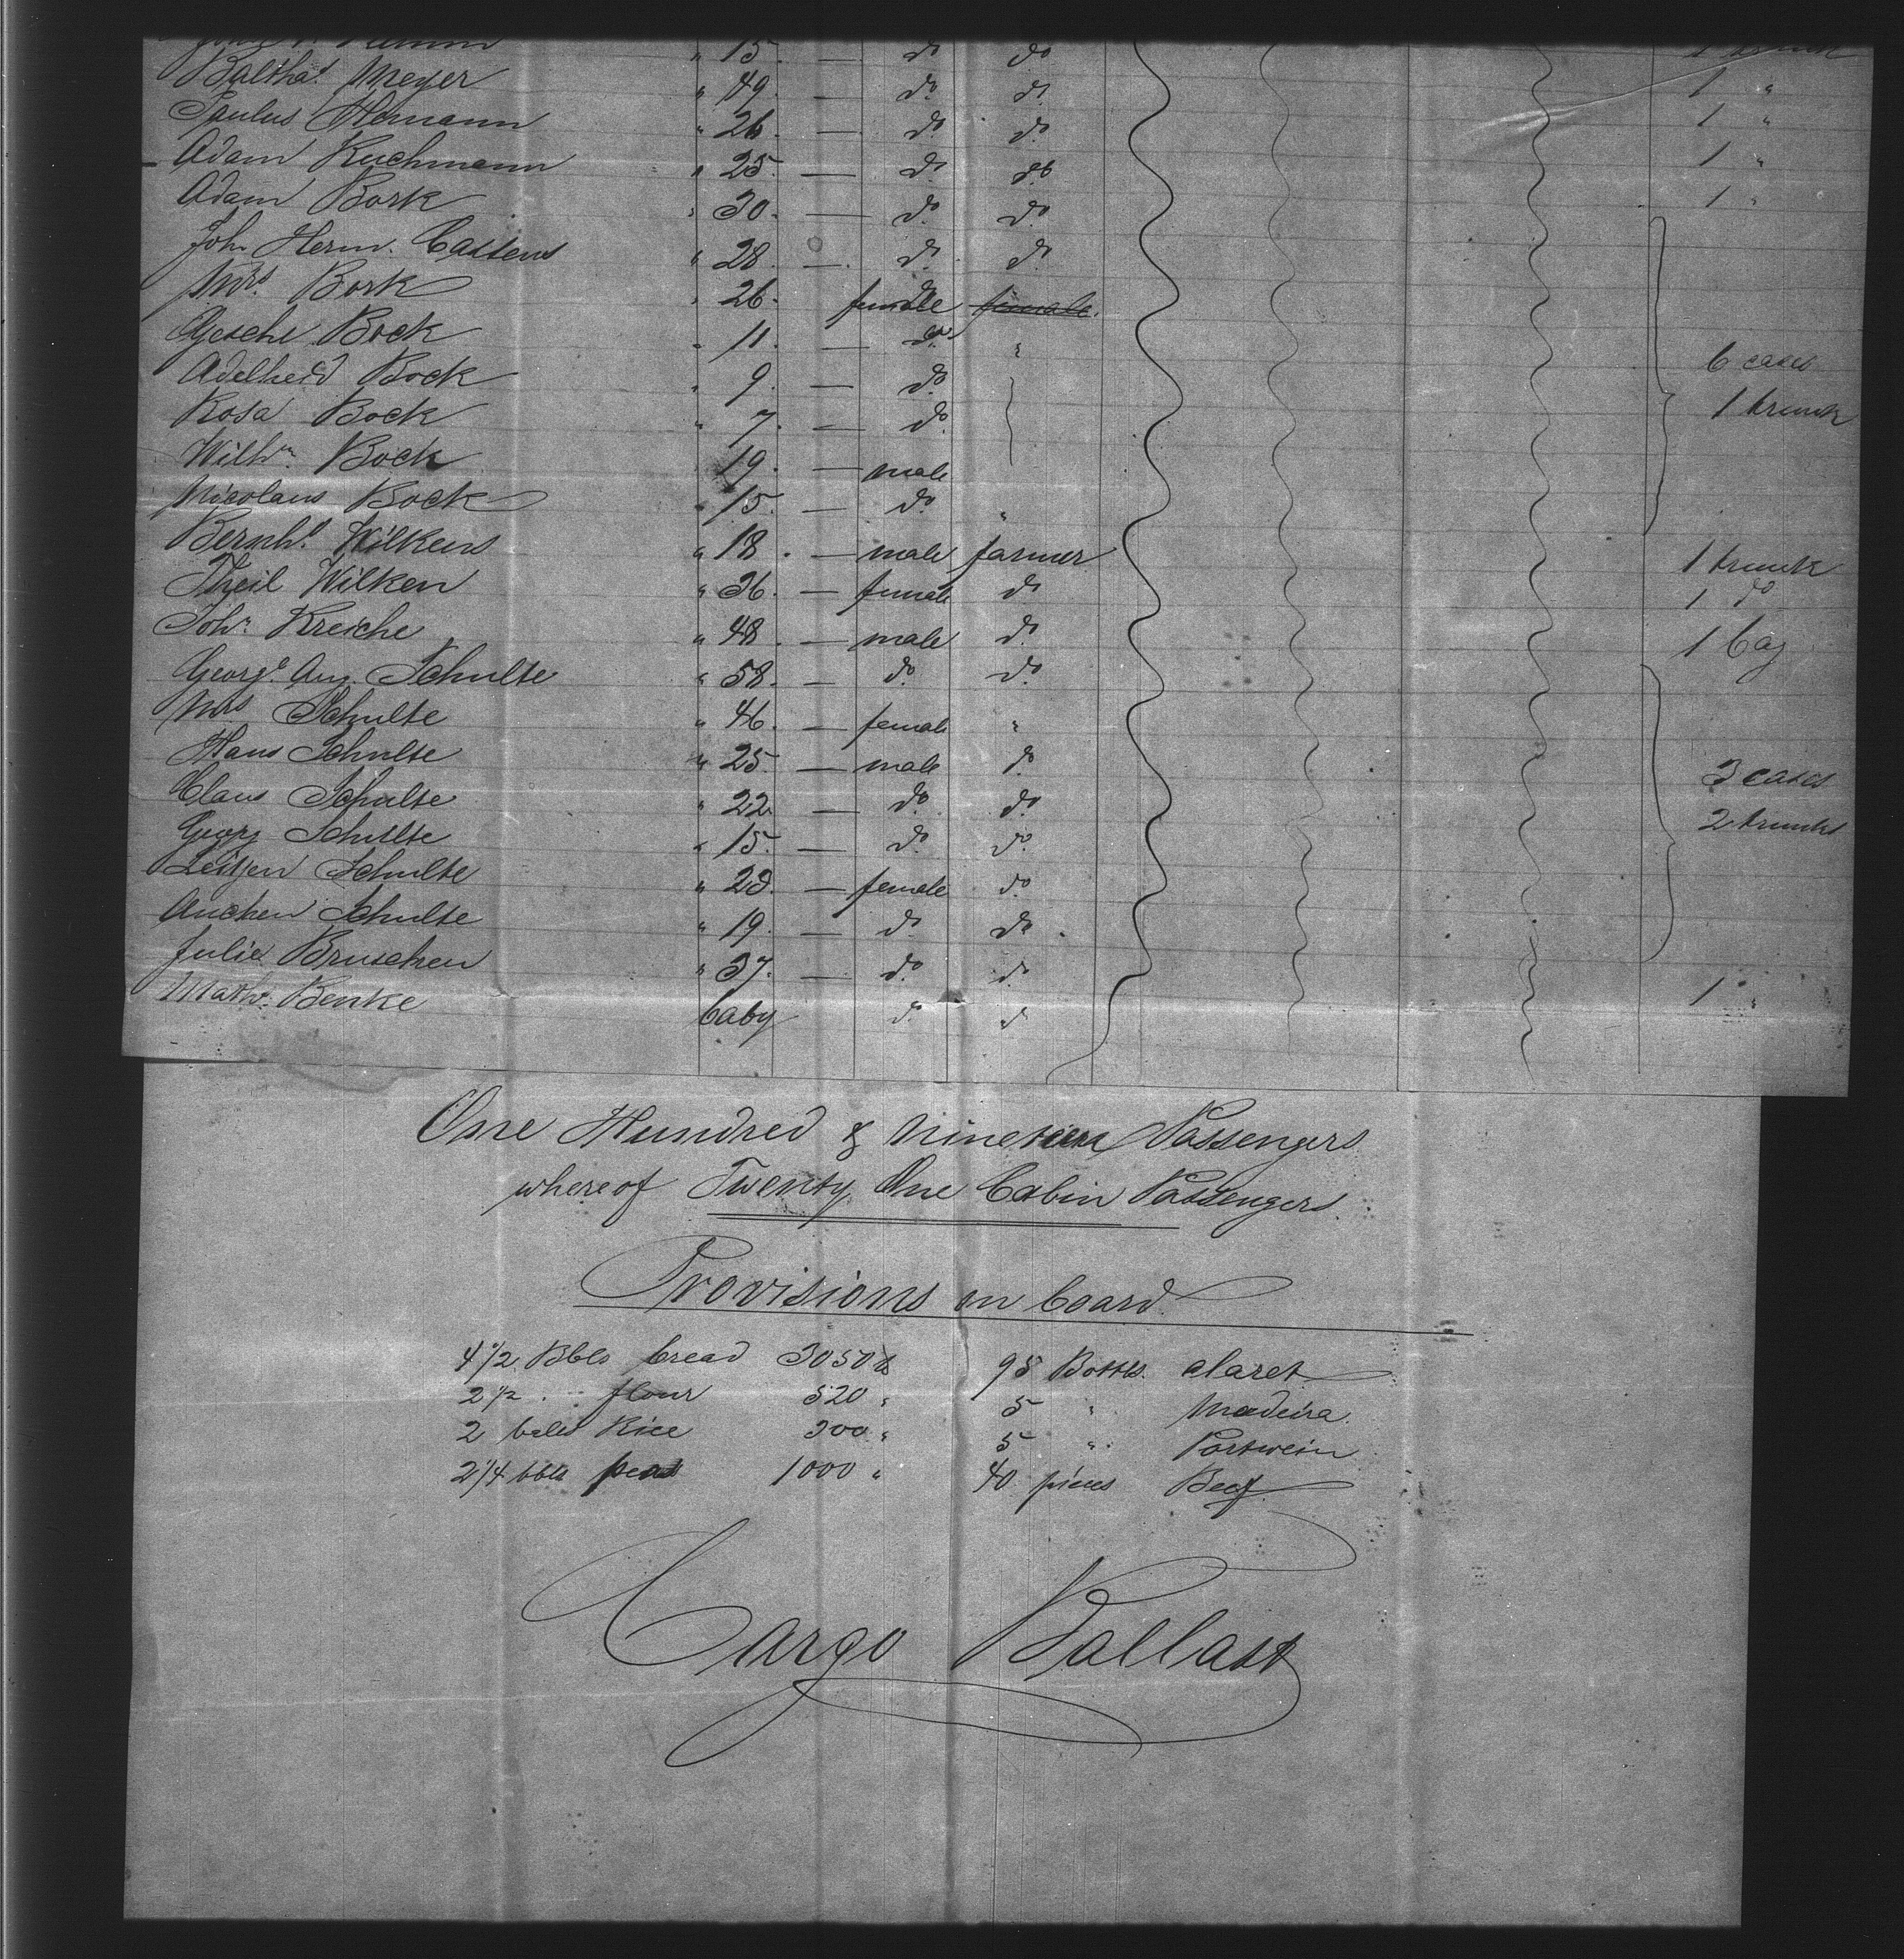 " 15. — do do 1 trunk
Baltha.r Meyer " 49. — do. do. 1 "
Paulus Hemann " 26. — do. do. 1 "
Adam Kuchmann " 25. — do. do 1 "
Adam Bork " 30. — do. do. 1 "
Joh. Herm. Castens " 28. — do. do.
Mrs. Bork " 26. female female.
Gesche Bock " 11. — do. "
Adelheid Bock " 9. — do. 6 cases
Rosa Bock " 7. — do. 1 trunk
Wilhm. Bock " 19. — male
Nicolaus Bock " 15. — do. "
Bernhd. Wilkens " 18. — male farmer 1 trunk
Theil Wilken " 36. — female do 1 do
Johs. Kreiche " 48. — male do. 1 bag
Georg. Aug. Schulte " 58. — do. do.
Mrs Schulte " 46. — female "
Hans Schulte " 25. — male do.
Claus Schulte " 22. — do. do. 3 cases
Georg Schulte " 15. — do. do. 2 trunks
Schulte " 23. — female do.
Anchen Schulte " 19. — do. do.
Julie Bruschen " 37. — do. do.
Math. Benke baby do. do 1 "
One Hundred & Nineteen Passengers
whereof Twenty One Cabin Passengers.
Provisions on board.
4 1/2 Bbls bread 3050 lb 95 Bottls. claret
2 1/2 " flour 520 " 5 " Madeira.
2 bales Rice 300 " 5 " Portwein
2 1/4 bbls peas 1000 " 40 pieces Beef.
Cargo Ballast